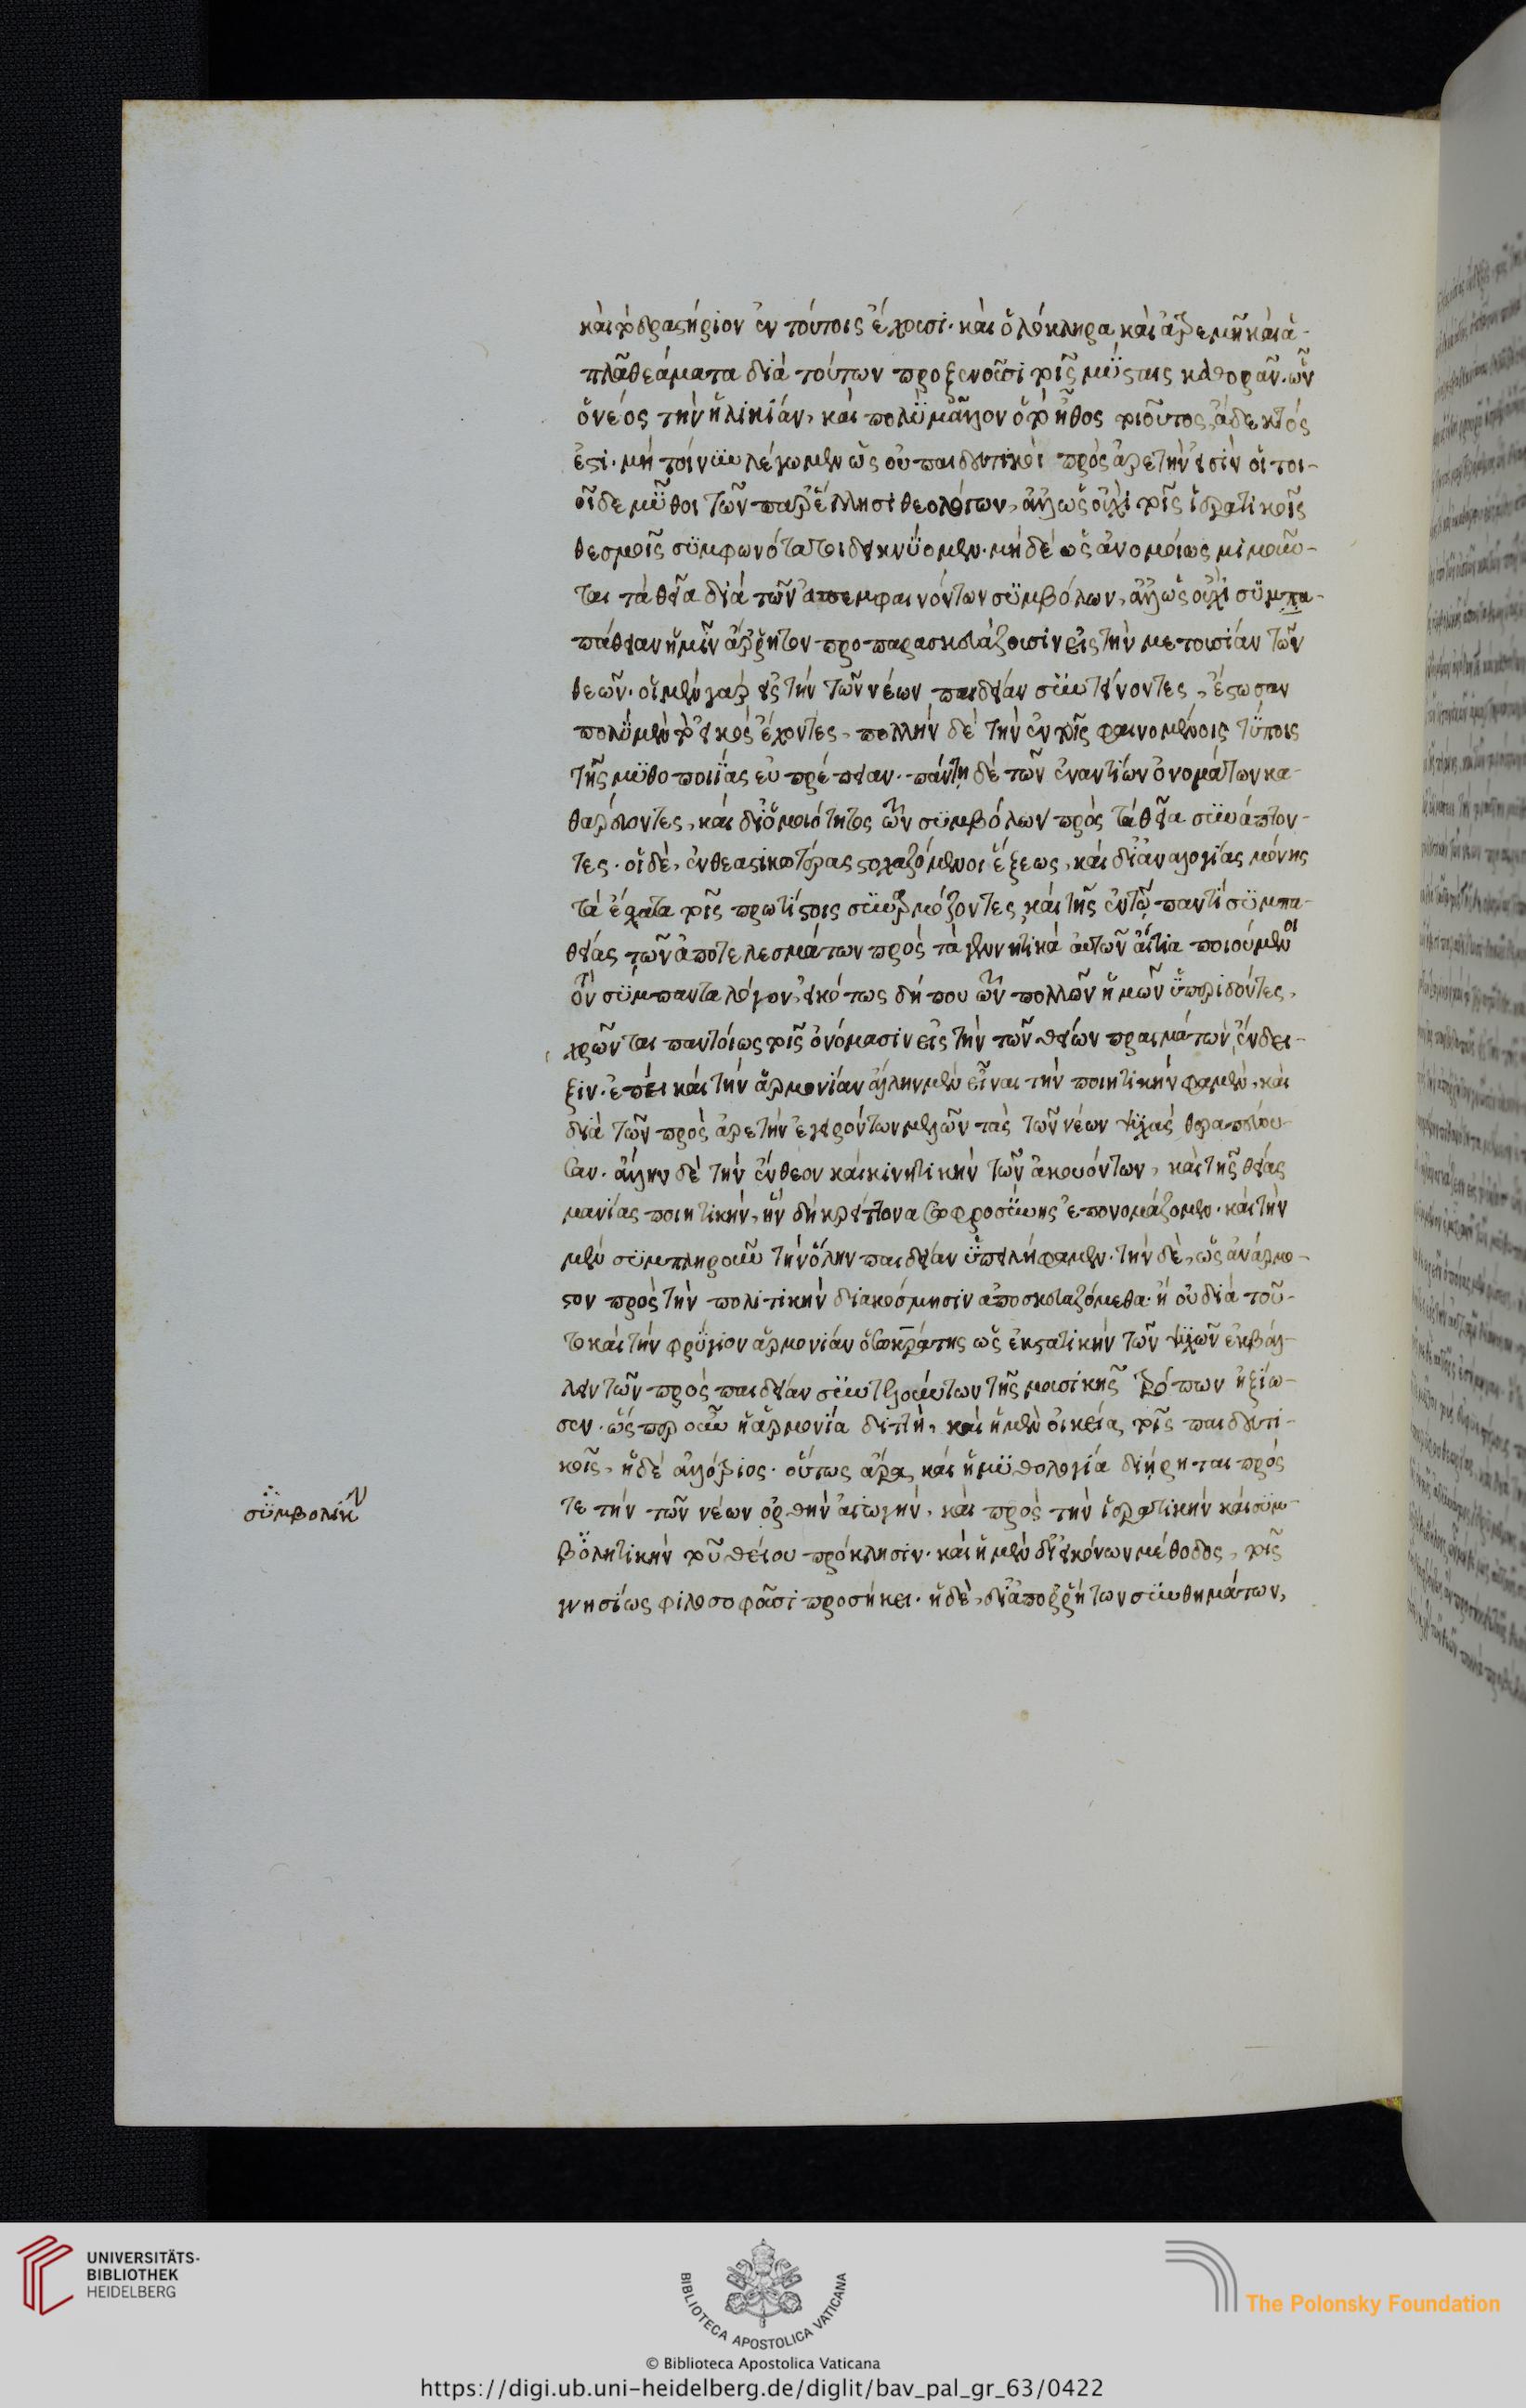 καὶ τὸ δραστήριον ἐν τούτοις ἔχουσι· καὶ ὁλόκληρα καὶ ἀτρεμῆ καὶ ἁ-
πλᾶ θεάματα διὰ τούτων προξενοῦσι τοῖς μύσταις καθορᾶν· ὧν
ὁ νέος τὴν ἡλικίαν, καὶ πολὺ μᾶλλον ὁ τὸ ἦθος τοιοῦτος, ἄδεκτός
ἐστι· μὴ τοίνυν λέγωμεν ὡς οὐ παιδευτικοὶ πρὸς ἀρετήν εἰσιν οἱ τοι-
οίδε μῦθοι τῶν παρ' ἕλλησι θεολόγων, ἀλλ' ὡς οὐχὶ τοῖς ἱερατικοῖς
θεσμοῖς συμφωνότατοι δεικνύομεν· μηδὲ ὡς ἀνομοίως μιμοῦν-
ται τὰ θεῖα διὰ τῶν ἀπεμφαινόντων συμβόλων, ἀλλ' ὡς οὐχὶ συμπα-
πάθειαν ἡμῖν ἄρρητον προπαρασκευάζουσιν εἰς τὴν μετουσίαν τῶν
θεῶν· οἱ μὲν γὰρ εἰς τὴν τῶν νέων παιδείαν συντείνοντες, ἔστωσαν
πολὺ μὲν τὸ εἰκὸς ἔχοντες, πολλὴν δὲ τὴν ἐν τοῖς φαινομένοις τύποις
τῆς μυθοποιΐας εὐπρέπειαν· πάντη δὲ τῶν ἐναντίων ὀνομάτων κα-
θαρεύοντες, καὶ δι' ὁμοιότητος τῶν συμβόλων πρὸς τὰ θεῖα συνάπτον-
τες· οἱ δὲ, ἐνθεαστικωτέρας στοχαζόμενοι ἕξεως, καὶ δι' ἀναλογίας μόνης
τὰ ἔσχατα τοῖς πρωτίστοις συναρμόζοντες, καὶ τῆς ἐν τῷ παντὶ συμπα-
θείας τῶν ἀποτελεσμάτων πρὸς τὰ γεννητικὰ αὐτῶν αἴτια ποιούμενοι
τὸν σύμπαντα λόγον, εἰκότως δή που τῶν πολλῶν ἡμῶν ὑπεριδόντες,
χρῶνται παντοίως τοῖς ὀνόμασιν εἰς τὴν τῶν θείων πραγμάτων ἔνδει-
ξιν· ἐπεὶ καὶ τὴν ἁρμονίαν ἄλλην μὲν εἶναι τὴν ποιητικήν φαμεν, καὶ
διὰ τῶν πρὸς ἀρετὴν ἐγειρόντων μελῶν τὰς τῶν νέων ψυχὰς θεραπεύου-
σαν· ἄλλην δὲ τὴν ἔνθεον καὶ κινητικὴν τῶν ἀκουόντων, καὶ τῆς θείας
μανίας ποιητικὴν, ἣν δὴ κρείττονα σωφροσύνης ἐπονομάζομεν· καὶ τὴν
μὲν συμπληροῦν τὴν ὅλην παιδείαν ὑπειλήφαμεν· τὴν δὲ, ὡς ἀνάρμο-
στον πρὸς τὴν πολιτικὴν διακόσμησιν ἀποσκευαζόμεθα· ἢ οὐ διὰ τοῦ-
το καὶ τὴν φρύγιον ἁρμονίαν ὁ σωκράτης ὡς ἐκστατικὴν τῶν ψυχῶν ἐκβάλ-
λειν τῶν πρὸς παιδείαν συντελούντων τῆς μουσικῆς τρόπων ἠξίω-
σεν· ὥσπερ οὖν ἡ ἁρμονία διττὴ, καὶ ἡ μὲν οἰκεία τοῖς παιδευτι-
κοῖς, ἡ δὲ ἀλλότριος· οὕτως ἄρα καὶ ἡ μυθολογία διῄρηται πρός
τε τὴν τῶν νέων ὀρθὴν ἀγωγὴν, καὶ πρὸς τὴν ἱερατικὴν καὶ συμ-
βολητικὴν τοῦ θείου πρόκλησιν· καὶ ἡ μὲν δι' εἰκόνων μέθοδος, τοῖς
γνησίως φιλοσοφοῦσι προσήκει· ἡ δὲ, δι' ἀπορρήτων συνθημάτων,
συμβολικὴν
UNIVERSITÄTS-
BIBLIOTHEK
HEIDELBERG
BIBLIOTECA APOSTOLICA VATICANA
The Polonsky Foundation
© Biblioteca Apostolica Vaticana
https://digi.ub.uni-heidelberg.de/diglit/bav_pal_gr_63/0422